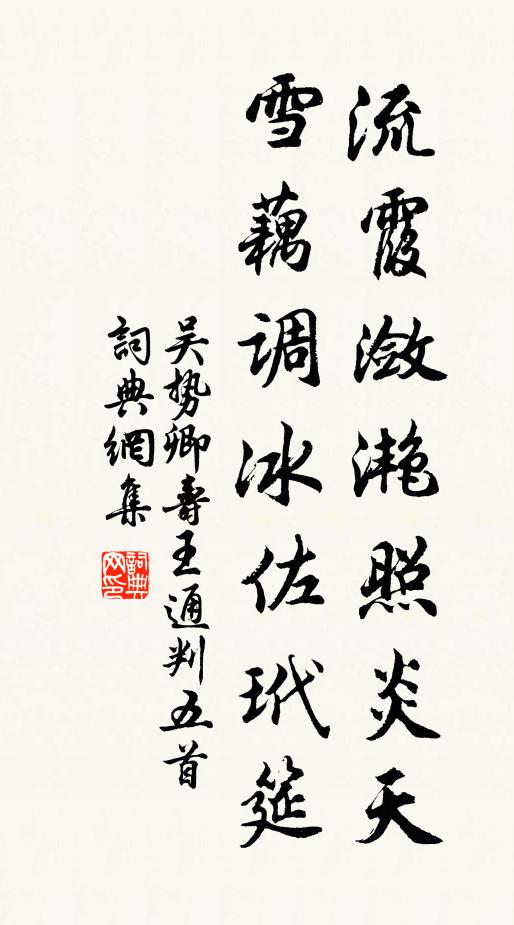 流霞瀲滟照炎天
雪藕调冰佐玳筵
吴势卿寿王通判五首
詞典網集
詞典网印